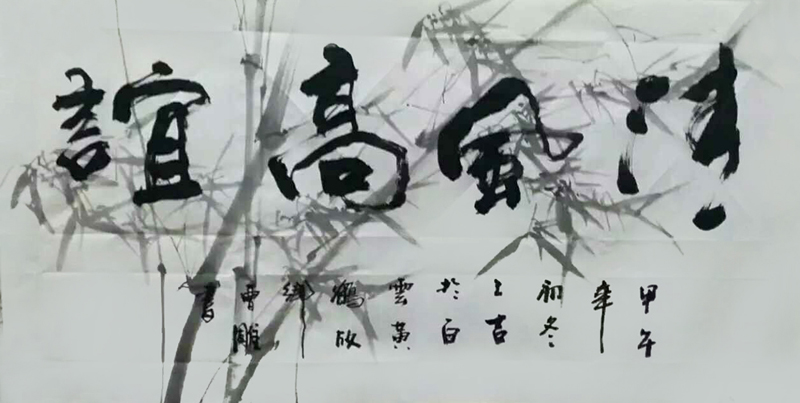 清風高誼
甲午
年
初冬
上吉
於白
雲黃
鶴
曹雕
書